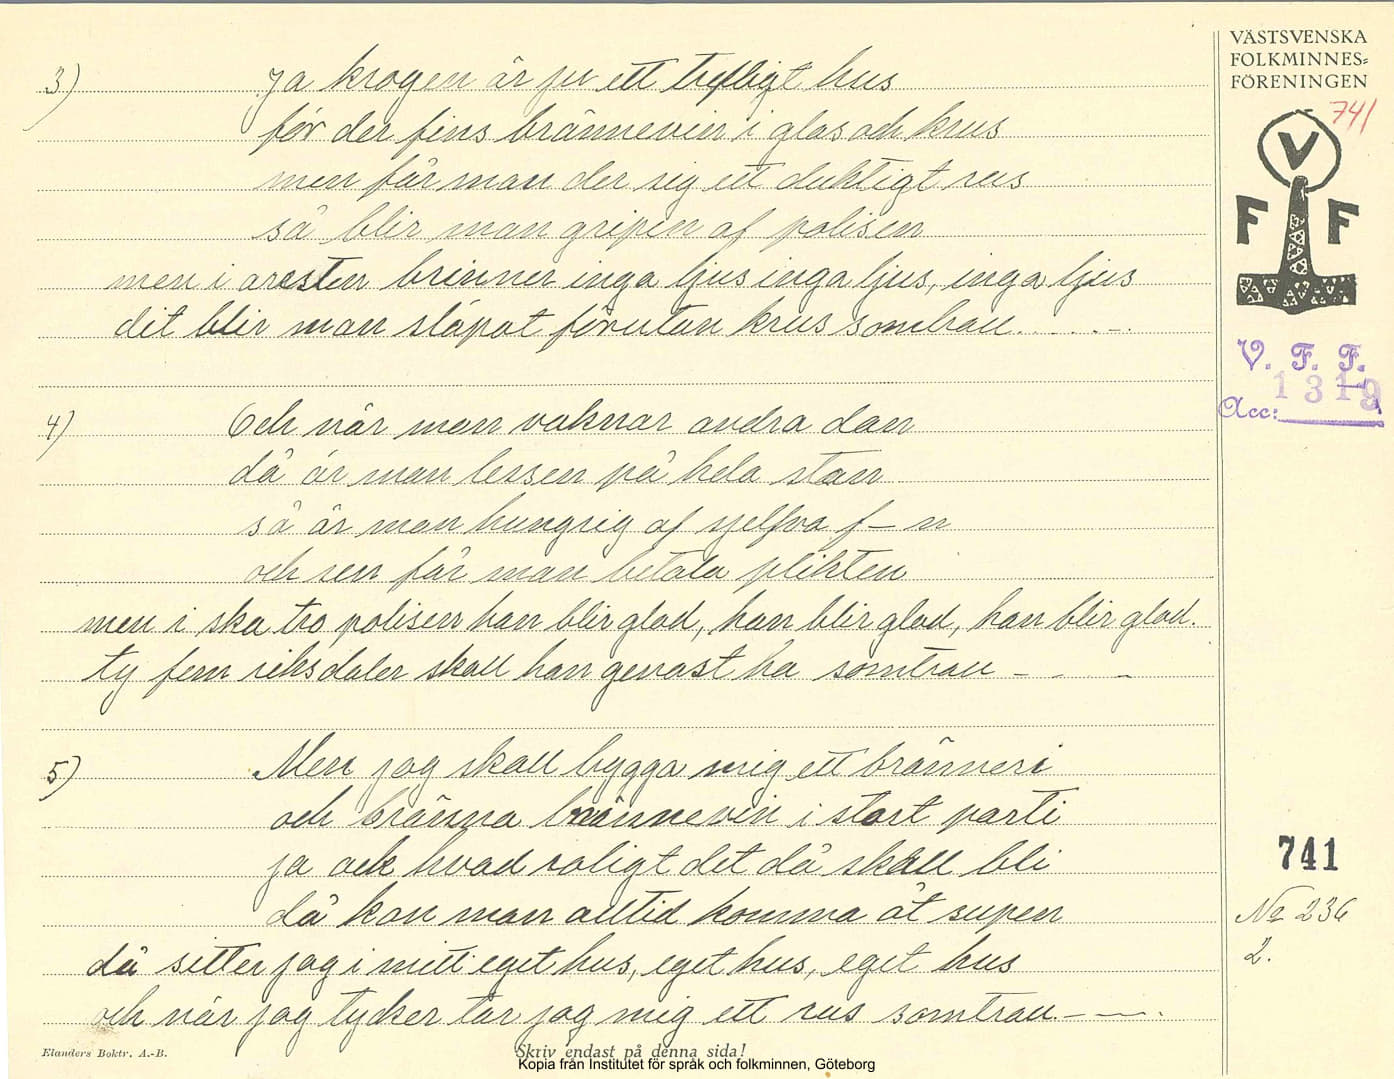 VÄSTSVENSKA
FOLKMINNES-
FÖRENINGEN
741
V
F F
V. F. F.
Acc: 1319
3) Ja krogen är ju ett trefligt hus
för der fins brännevin i glas och krus
men får man der sig ett duktigt rus
så blir man gripen af polisen
men i aresten brinner inga ljus inga ljus, inga ljus
dit blir man släpat förutan krus somtrau......-.
4) Och när man vaknar andra dan
då är man lessen på hela stan
så är man hungrig af sjelfva f-n
och sen får man betala plikten
men i ska tro polisen han blir glad, han blir glad, han blir glad.
ty fem riksdaler skall han genast ha somtrau - - . -
5) Men jag skall bygga mig ett bränneri
och bränna brännevin i stort parti
ja ack hvad roligt det då skall bli
då kan man alltid komma åt supen
då sitter jag i mitt eget hus, eget hus, eget hus
och när jag tycker tar jag mig ett rus somtrau.- - - .
741
No 236
2.
Elanders Boktr. A.-B.
Skriv endast på denna sida!
Kopia från Institutet för språk och folkminnen, Göteborg